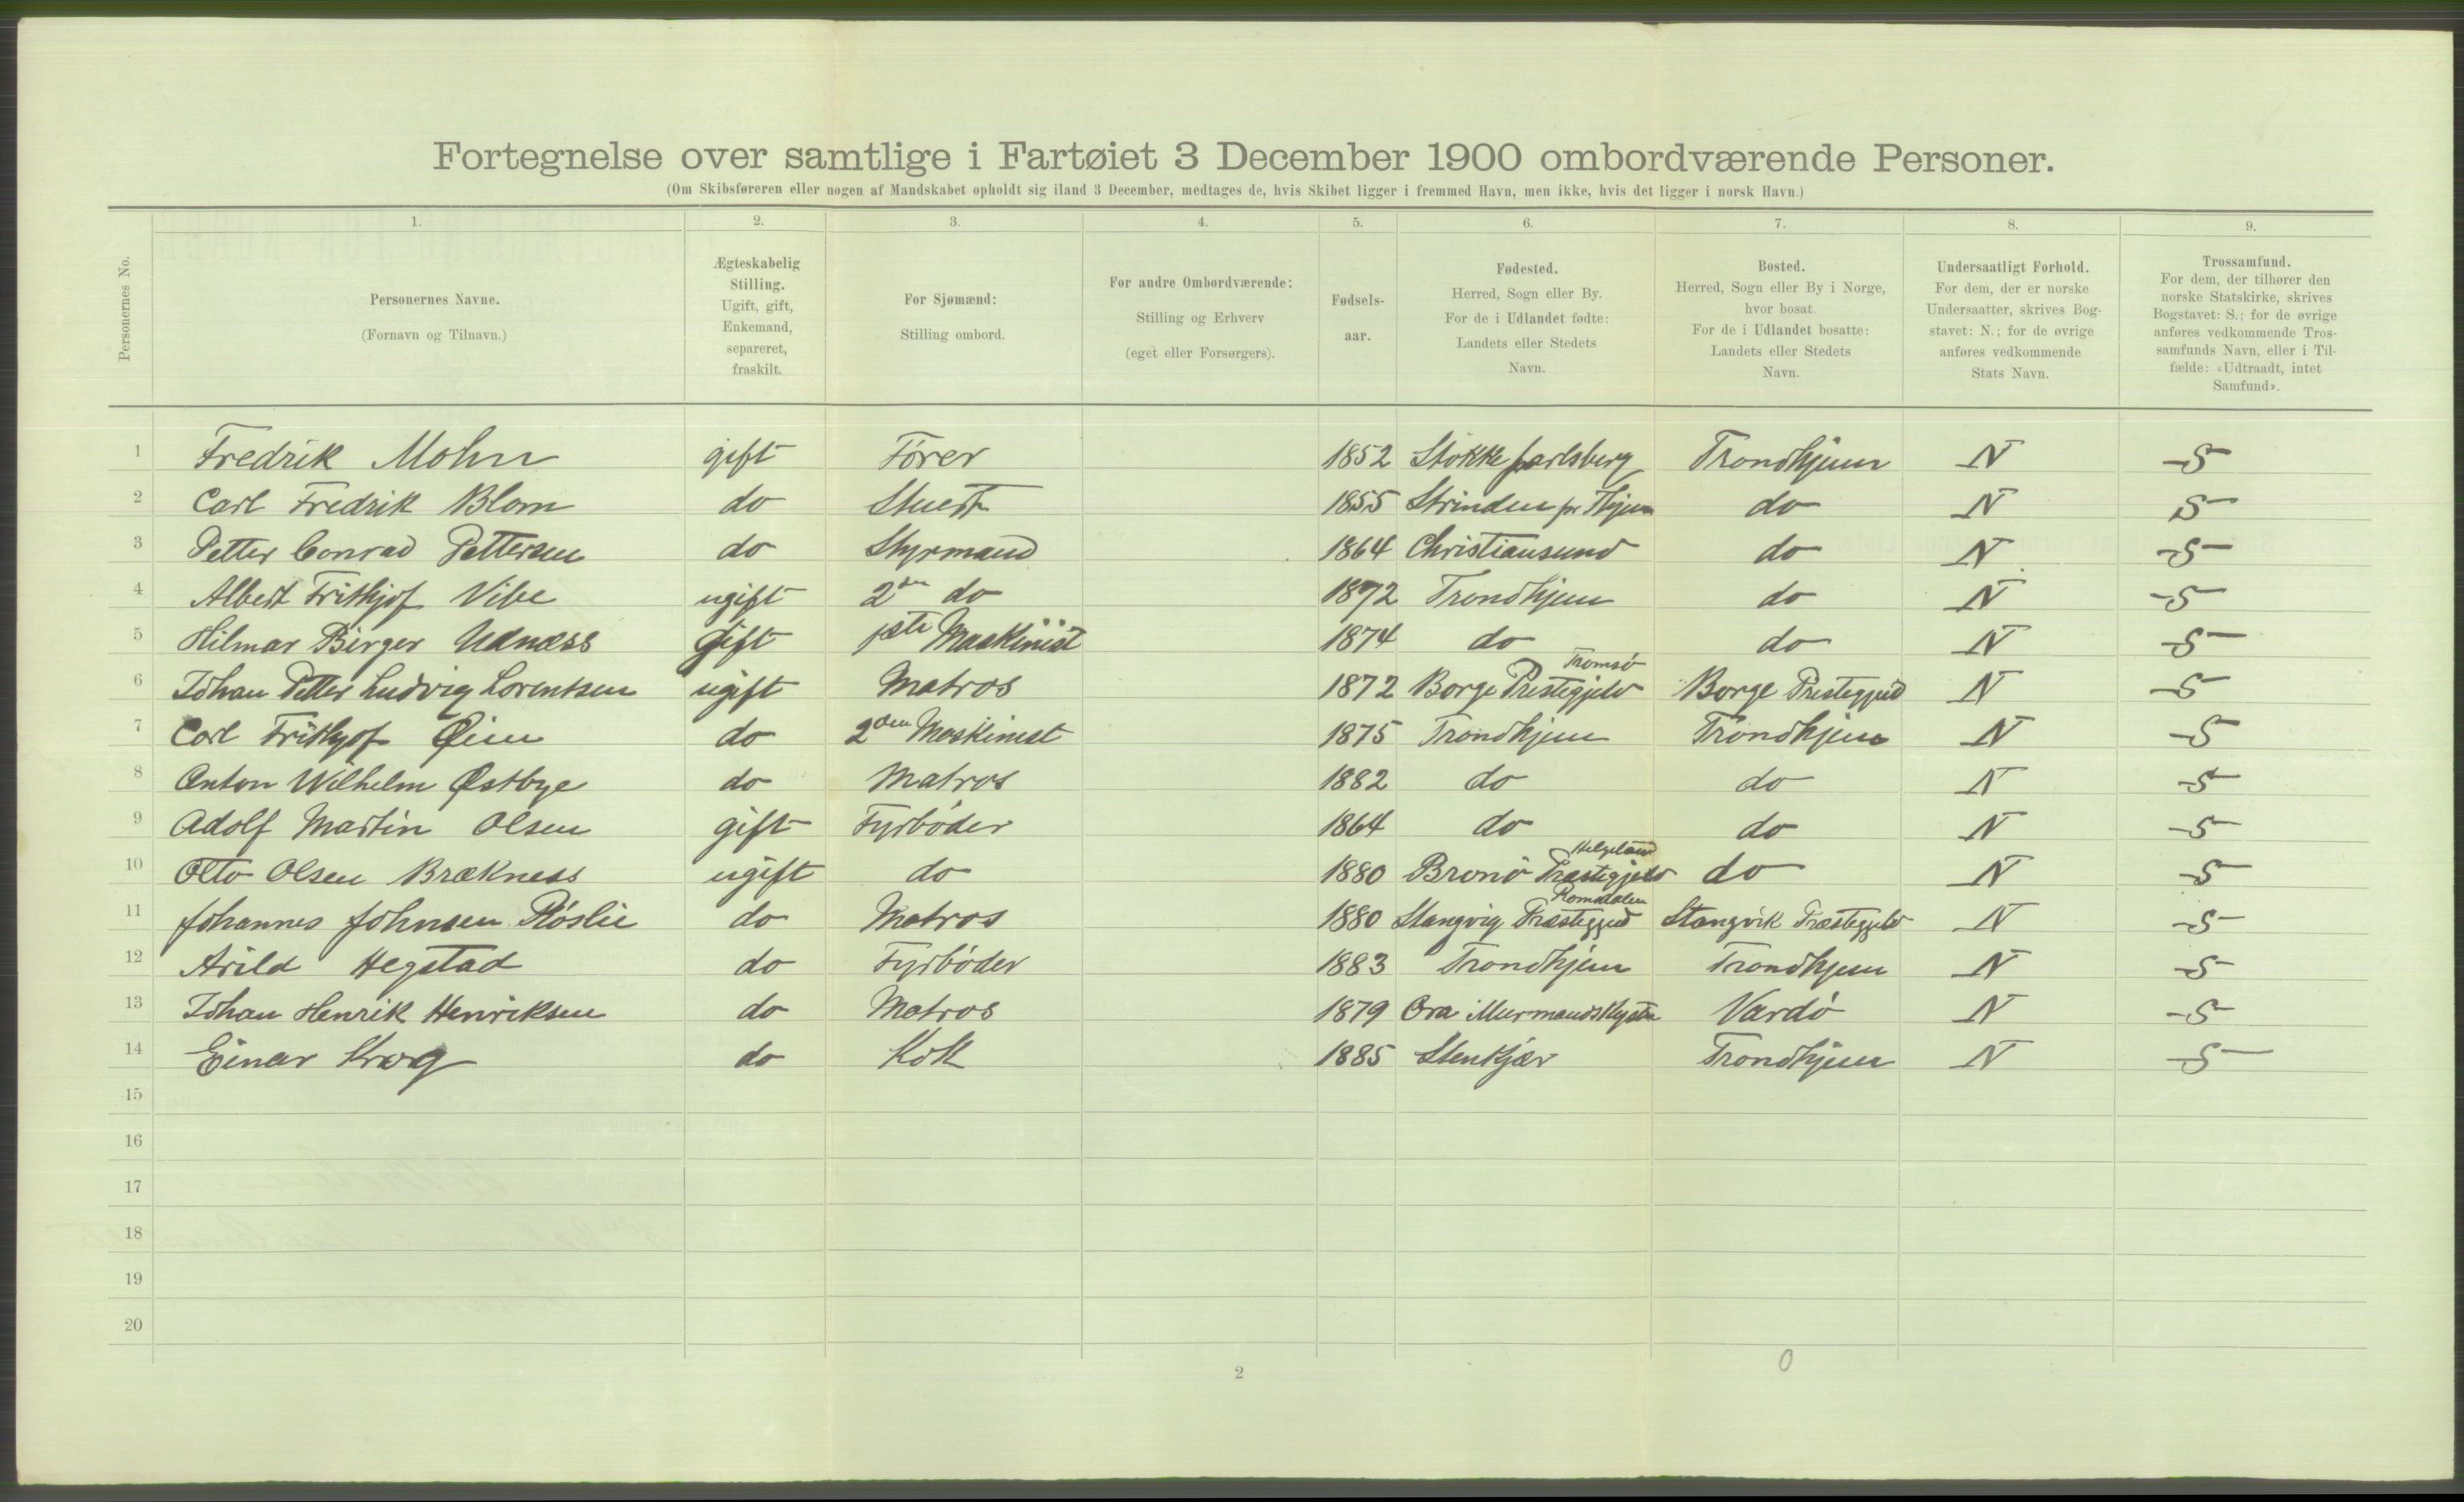 Fortegnelse over samtlige i Fartøiet 3 December 1900 ombordværende Personer.
(Om Skibsføreren eller nogen af Mandskabet opholdt sig iland 3 December, medtages de, hvis Skibet ligger i fremmed Havn, men ikke, hvis det ligger i norsk Havn.)
Personernes No.
1.
Personernes Navne.
(Fornavn og Tilnavn.)
2.
Ægteskabelig
Stilling.
Ugift, gift,
Enkemand,
separeret,
fraskilt.
3.
For Sjømænd:
Stilling ombord.
4.
For andre Ombordværende:
Stilling og Erhverv
(eget eller Forsørgers).
5.
Fødsels-
aar.
6.
Fødested.
Herred, Sogn eller By.
For de i Udlandet fødte:
Landets eller Stedets
Navn.
7.
Bosted.
Herred, Sogn eller By i Norge,
hvor bosat.
For de i Udlandet bosatte:
Landets eller Stedets
Navn.
8.
Undersaatligt Forhold.
For dem, der er norske
Undersaatter, skrives Bog-
stavet: N.; for de øvrige
anføres vedkommende
Stats Navn.
9.
Trossamfund.
For dem, der tilhører den
norske Statskirke, skrives
Bogstavet: S.; for de øvrige
anføres vedkommende Tros-
samfunds Navn, eller i Til-
fælde: «Udtraadt, intet
Samfund».
1 Fredrik Mohn gift Fører 1852 Stokke Jarlsberg Trondhjem N S
2 Carl Fredrik Blom do Stuert 1855 Strinden pr Thjem do N S
3 Petter Conrad Pettersen do Styrmand 1864 Christiansund do N S
4 Albert Frithjof Vibe ugift 2den do 1872 Trondhjem do N S
5 Hilmar Birger Udnæss gift 1ste Maskinist 1874 do do N S
Tromsö
6 Johan Petter Ludvig Lorentsen ugift Matros 1872 Borge Prestegjeld Borge Prestegjeld N S
7 Carl Frithjof Øien do 2den Maskinist 1875 Trondhjem Trondhjem N S
8 Anton Wilhelm Østbye do Matros 1882 do do N S
9 Adolf Martin Olsen gift Fyrböder 1864 do do N S
Helgeland
10 Otto Olsen Brækness ugift do 1880 Brønö Præstegjeld do N S
Romsdalen
11 Johannes Johnsen Röslie do Matros 1880 Stangvig Præstegjeld Stangvik Præstegjeld N S
12 Arild Hegstad do Fyrböder 1883 Trondhjem Trondhjem N S
13 Johan Henrik Henriksen do Matros 1879 Ora Murmandskysten Vardö N S
14 Einar Krog do Kok 1885 Stenkjær Trondhjem N S
15
16
17
18
19
20
2
0